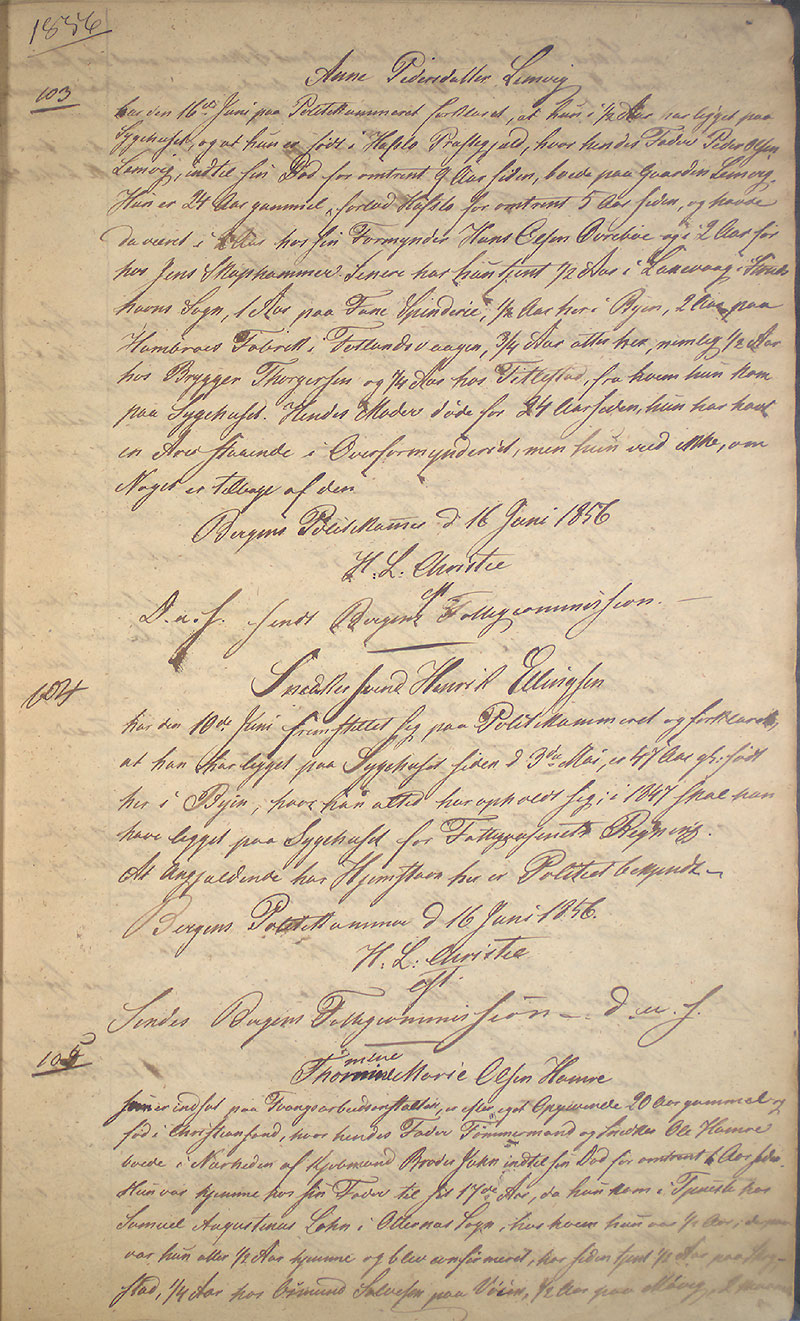 1856
103
Anne Pedersdatter Lemvig
har den 16de Juni paa Politikammeret forklaret, at hun i 1/2 Aar har ligget paa
Sygehuset, og at hun er født i Hafslo Præstegjæld, hvor hendes Fader Peder Olsen
Lemvig, indtil sin Død for omtrent 9 Aar siden, boede paa Gaarden Lemvig.
Hun er 24 Aar gammel, forlod Hafslo for omtrent 5 Aar siden, og havde
da været i Aar hos sin Formynder Hans Olsen Ovreboe og i 2 Aar før
hos Jens Skaphammer. Senere har hun tjent 1/2 Aar i Laxevaag i
havns Sogn, 1 Aar paa Fane Spinderie, 1/2 Aar her i Byen, 2 Aar paa
Hambroes Fabrik i Fotlandsvaagen, 3/4 Aar atter her, nemlig 1/2 Aar
hos Brygger Thorgersen og 1/4 Aar hos Titlestad, fra hvem hun kom
paa Sygehuset. Hendes Moder døde for 24 Aar siden, hun har havt
en Arv staaende i Overformynderiet, men hun ved ikke, om
Noget er tilbage af den
Bergens Politikammer d 16 Juni 1856
H. L. Christie
cst
D. u. s. sendt Bergens Fattigcommission.
104
Snedkersvend Henrik Ellingsen
har den 10de Juni fremstillet sig paa Politikammeret og forklaret,
at han har ligget paa Sygehuset siden d 3die Mai, er 47 Aar gl: født
her i Byen, hvor han altid har opholdt sig; i 1847 skal han
have ligget paa Sygehuset for Fattigvæsenets Regning.
At Angjældende har Hjemstavn her er Politiet bekjendt
Bergens Politikammer d 16 Juni 1856.
H. L. Christie
cst.
Sendes Bergens Fattigcommission d. u. s.
105
mine
Marie Olsen Hamre
er indsat paa Tvangsarbeidsanstalten, er efter eget Opgivende 20 Aar gammel og
fød i Christiansand, hvor hendes Fader Tømmermand og Snedker Ole Hamre
boede i Nærheden af Kjøbmand Broder John indtil sin Død for omtrent 6 Aar siden.
Hun var hjemme hos sin Fader til sit 17de Aar, da hun kom i Tjeneste hos
Samuel Augustinus Lohn i Sogn, hos hvem hun var 1/2 Aar; derpaa
var hun atter 1/2 Aar hjemme og blev confirmeret, har siden tjent 1/2 Aar paa
stad, 1/4 Aar hos Osmund Salvesen paa Voien, 1/2 Aar paa 2